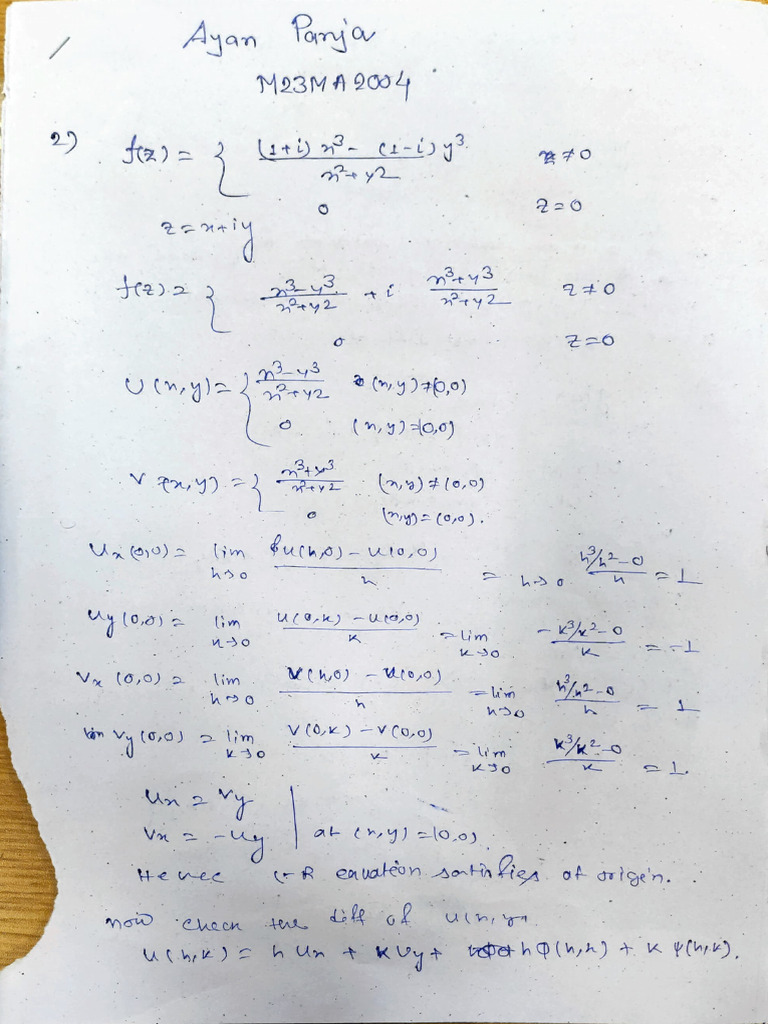 Ayan Panja
M23MA2004
2) f(z) = { (1+i) x³ - (1-i) y³ / x²+y² z≠0
0 z=0
z = x+iy
f(z) = { x³-y³ / x²+y² + i x³+y³ / x²+y² z≠0
0 z=0
U(x,y) = { x³-y³ / x²+y² (x,y)≠(0,0)
0 (x,y)=(0,0)
V(x,y) = { x³+y³ / x²+y² (x,y)≠(0,0)
0 (x,y)=(0,0).
Ux(0,0) = lim h→0 u(h,0) - u(0,0) / h = h→0 h³/h²-0 / h = 1
Uy(0,0) = lim k→0 u(0,k) - u(0,0) / k = lim k→0 -k³/k²-0 / k = -1
Vx(0,0) = lim h→0 V(h,0) - u(0,0) / h = lim h→0 h³/h²-0 / h = 1
Vy(0,0) = lim k→0 V(0,k) - V(0,0) / k = lim k→0 k³/k²-0 / k = 1.
Ux = Vy
Vx = -Uy | at (x,y) = (0,0)
Hence C-R equation satisfies at origin.
now check the diff of u(x,y)
u(h,k) = h Ux + k Uy + h φ(h,k) + k ψ(h,k).